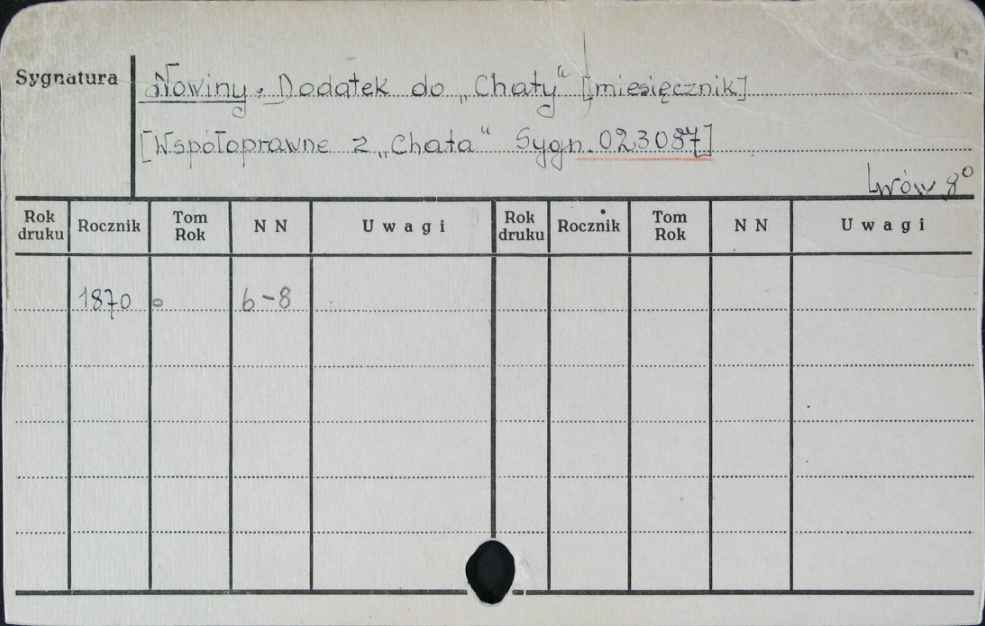 Sygnatura
Nowiny. Dodatek do „Chaty" [miesięcznik]
[Współoprawne z „Chata" Sygn. 023087]
Lwów 8°
Rok druku Rocznik Tom Rok N N Uwagi Rok druku Rocznik Tom Rok N N Uwagi
1870 6-8